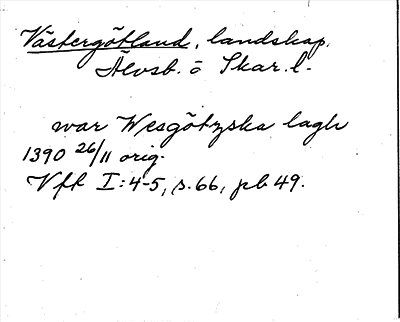 Västergötland, landskap.
Älvsb. o Skar. l.
war Wesgötzska lagh
1390 26/11 orig.
Vft I:4-5, s. 66, pb 49.